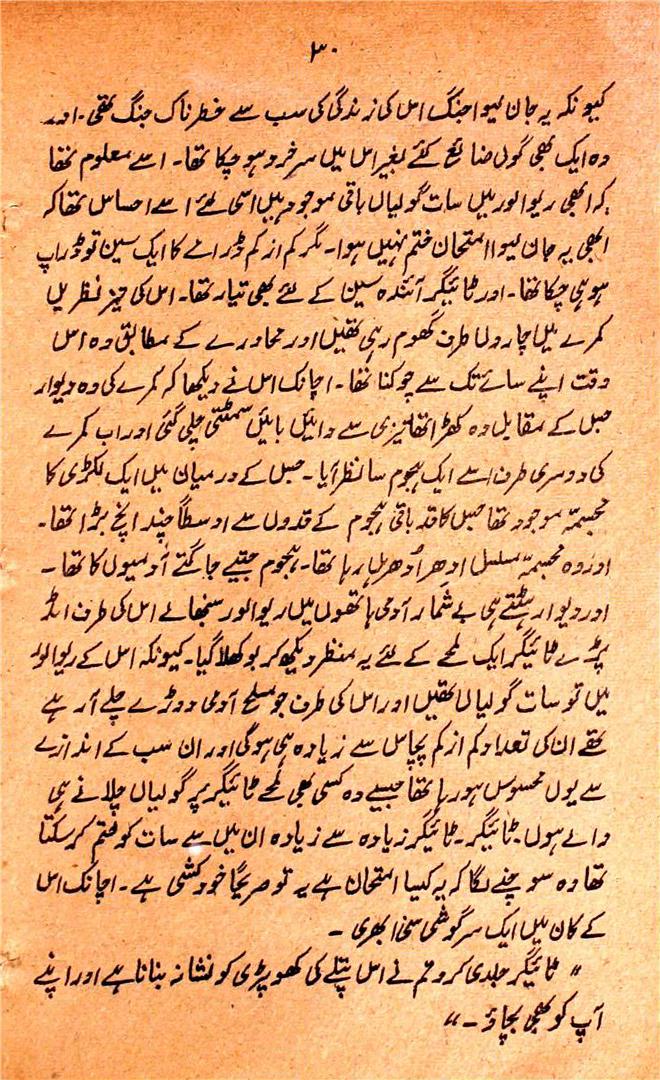 ۳۰
کیونکہ یہ جان لیوا جنگ اس کی زندگی کی سب سے خطرناک جنگ تھی۔ اور
وہ ایک بھی گولی ضائع کئے بغیر اس میں سرخرو ہو چکا تھا۔ اسے معلوم تھا
کہ ابھی ریوالور میں سات گولیاں باقی موجود ہیں اسی لئے اسے احساس تھا کہ
ابھی یہ جان لیوا امتحان ختم نہیں ہوا۔ مگر کم از کم ڈرامے کا ایک سین تو ڈراپ
ہو ہی چکا تھا۔ اور ٹائیگر آئندہ سین کے لئے بھی تیار تھا۔ اس کی تیز نظریں
کمرے میں چاروں طرف گھوم رہی تھیں اور محاورے کے مطابق وہ اس
وقت اپنے سائے تک سے چوکنا تھا۔ اچانک اس نے دیکھا کہ کمرے کی وہ دیوار
جس کے مقابل وہ کھڑا تھا تیزی سے دائیں بائیں سمٹتی چلی گئی اور اب کمرے
کی دوسری طرف اسے ایک ہجوم سا نظر آیا۔ جس کے درمیان میں ایک لکڑی کا
مجسمہ موجود تھا جس کا قد باقی ہجوم کے قدوں سے اوسطاً چند انچ بڑا تھا۔
اور وہ مجسمہ مسلسل اِدھر اُدھر ہل رہا تھا۔ ہجوم جیتے جاگتے آدمیوں کا تھا۔
اور دیوار ہٹتے ہی بے شمار آدمی ہاتھوں میں ریوالور سنبھالے اس کی طرف امڈ
پڑے ٹائیگر ایک لمحے کے لئے یہ منظر دیکھ کر بوکھلا گیا۔ کیونکہ اس کے ریوالور
میں تو سات گولیاں تھیں اور اس کی طرف جو مسلح آدمی دوڑے چلے آ رہے
تھے ان کی تعداد کم از کم پچاس سے زیادہ ہی ہوگی اور ان سب کے انداز
سے یوں محسوس ہو رہا تھا جیسے وہ کسی بھی لمحے ٹائیگر پر گولیاں چلانے ہی
والے ہوں۔ ٹائیگر۔ ٹائیگر زیادہ سے زیادہ ان میں سے سات کو ختم کر سکتا
تھا وہ سوچنے لگا کہ یہ کیسا امتحان ہے یہ تو صریحاً خودکشی ہے۔ اچانک اس
کے کان میں ایک سرگوشی سی ابھری۔
" ٹائیگر جلدی کرو تم نے اس پتلے کی کھوپڑی کو نشانہ بنانا ہے اور اپنے
آپ کو بھی بچاؤ۔"